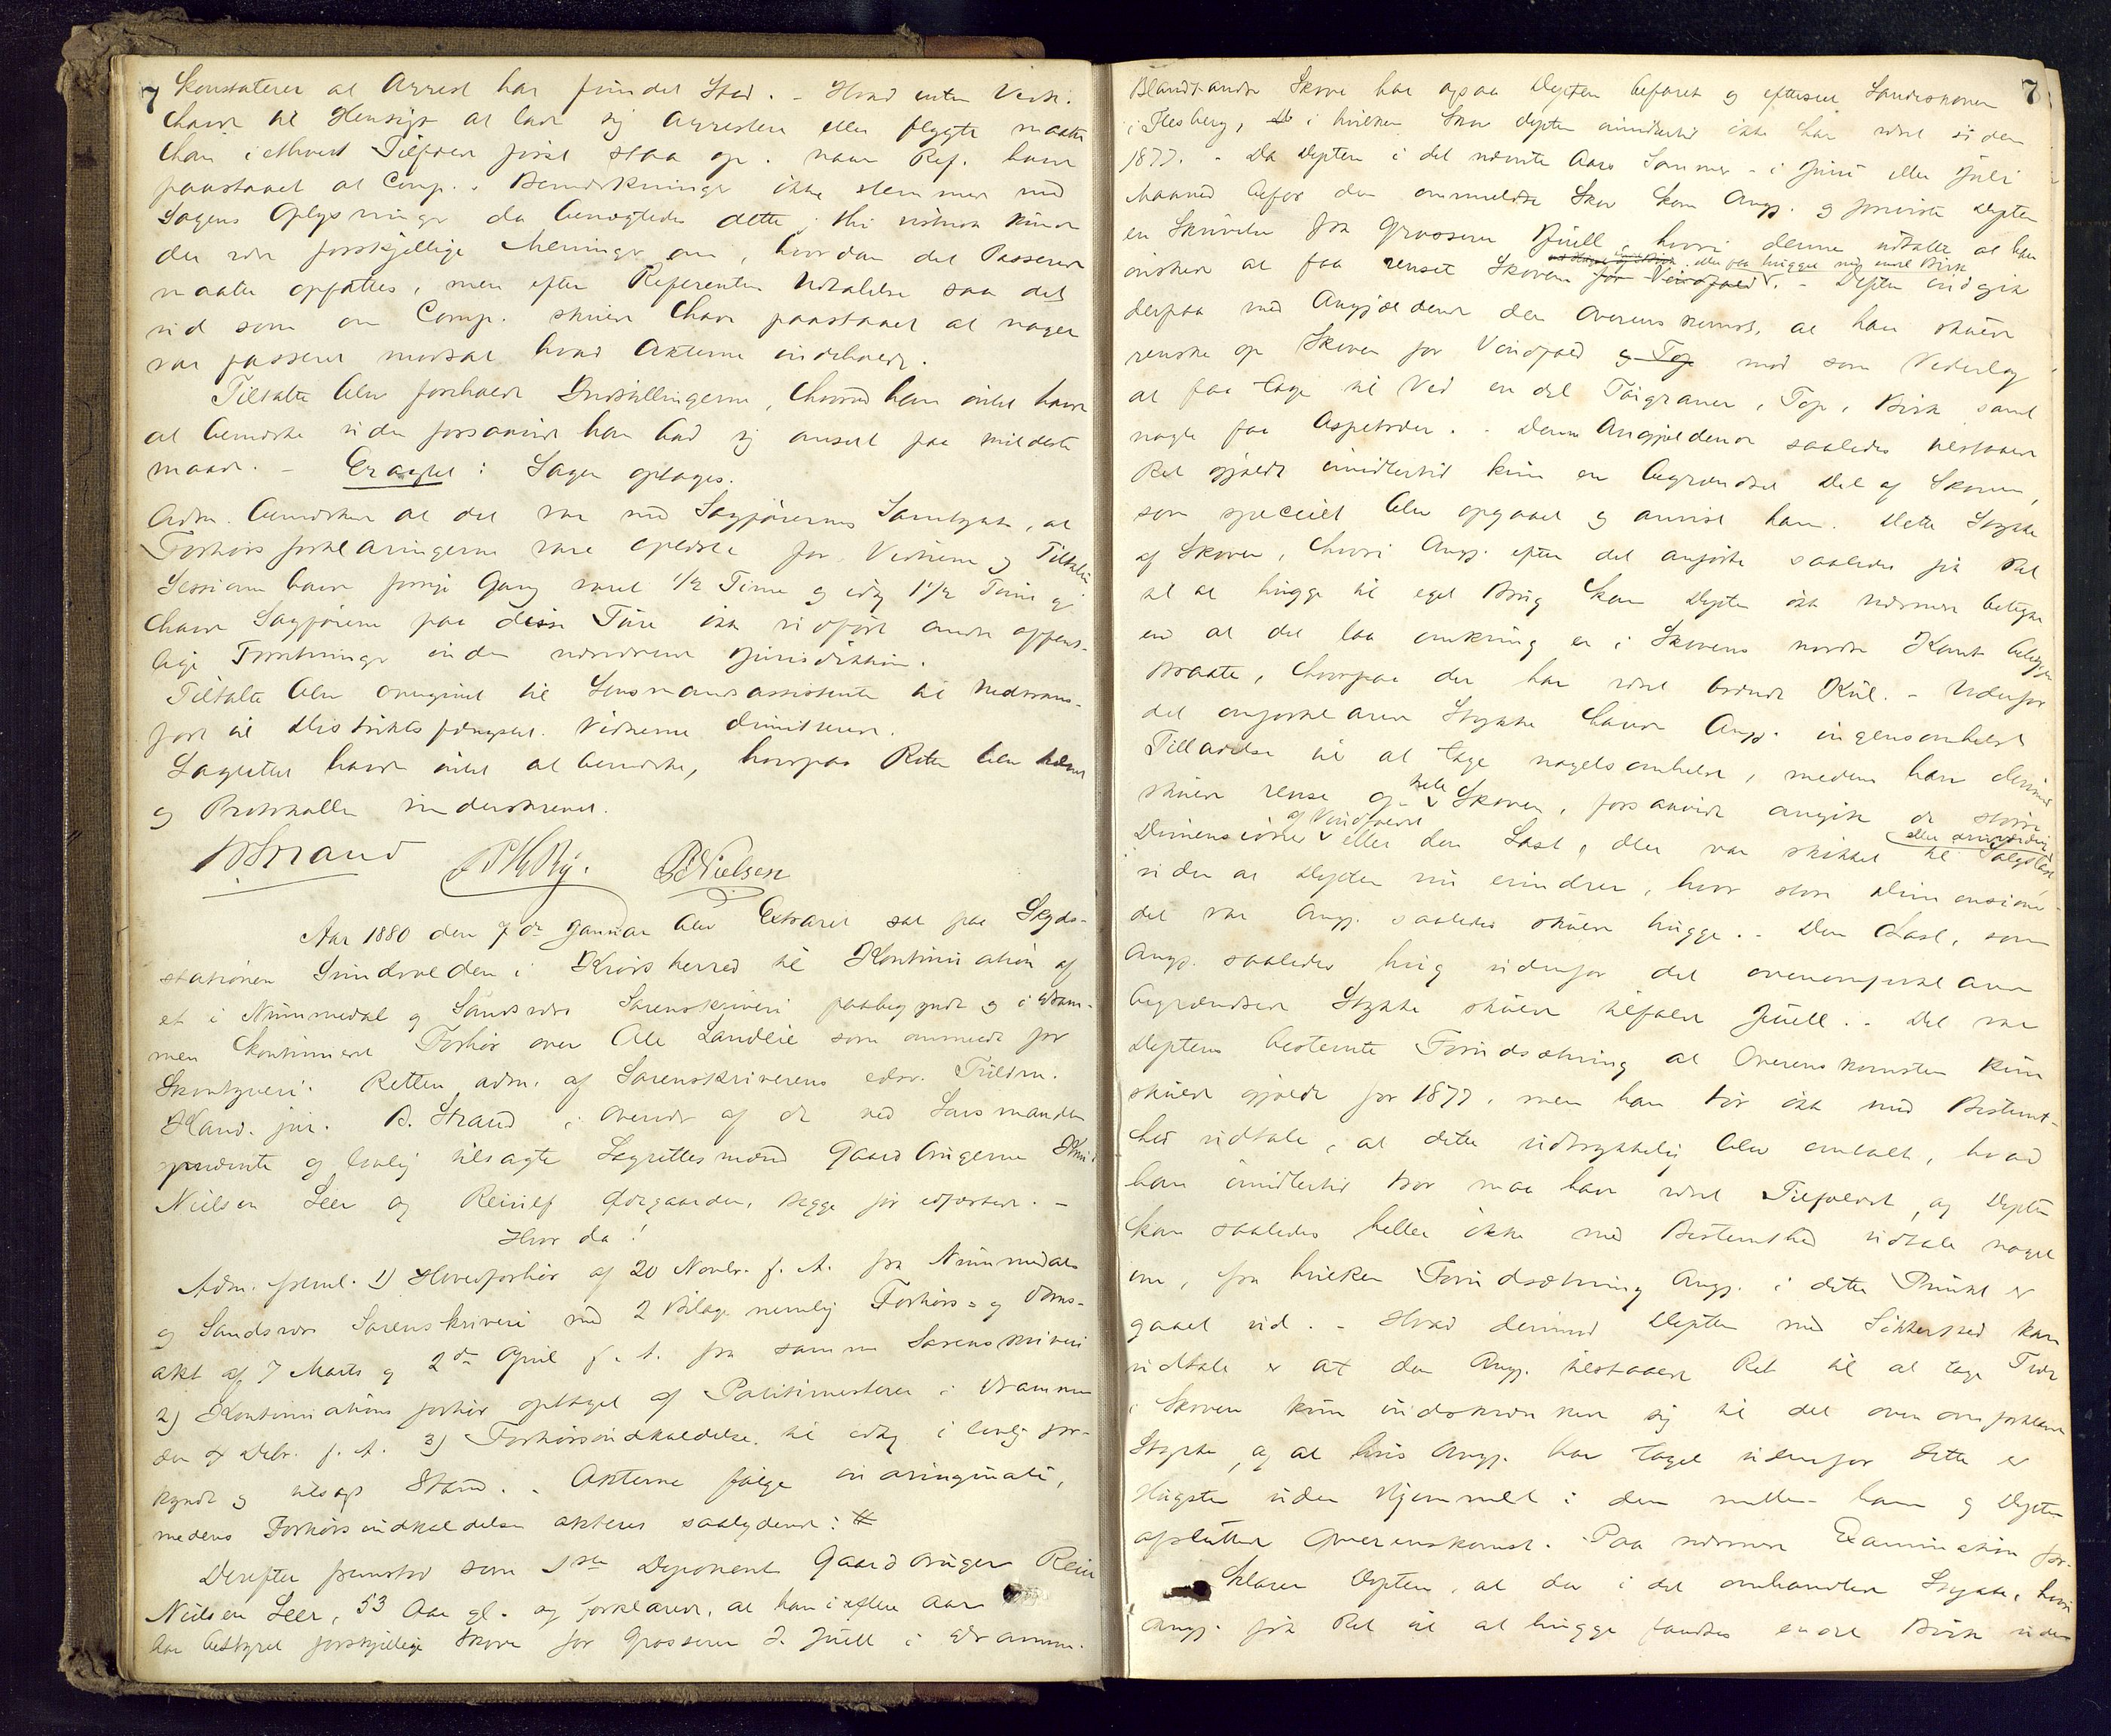 7 Konstaterer at Arrest har fundet Sted. - Hvad enten Vedk.
havde til Hensigt at lade sig arrestere eller flygte maatte
han i ethvert Tilfælde først staa op. naar Ref. havde
paastaaet at Comp.s Bemærkninger ikke stemmer med
Sagens Oplysninger da benægtedes dette; thi vistnok kunde
der være forskjellige Meninger om, hvordan det Passerede
maatte opfattes, men efter Referentens Udtalelse saa det
ud som om Comp. skulde have paastaaet at noget
var passeret modsat hvad Akterne indeholdt.
Tiltalte blev foreholdt Indstillingerne, hvorved han intet havde
at bemærke uden forsaavidt han bad sig anseet paa mildeste
maade. - Eragtet: Sagen optages.
Adm. bemærkede at det var med Sagførernes Samtykke, at
Forhørsforklaringerne vare oplæste for Vidnerne og Tiltalte
Sessionen havde forrige Gang varet 1/2 Time og idag 1 1/2 Time og
havde Sagførerne paa disse Ture ikke udført andre offent-
lige Forretninger inden nærværende Jurisdiktion.
Tiltalte blev overgivet til Lensmandsassistenten til Nedtrans-
port til Distriktsfængslet. Vidnerne dimitteredes.
Lagrettet havde intet at bemærke, hvorpaa Retten blev hævet
og Protokollen underskrevet.
B Strand P H Ry. P. Nielsen
Aar 1880 den 7de Januar blev Extraret sat paa Skyds-
stationen Sundvolden i Krødsherred til Kontinuation af
et i Nummedal og Sandsværs Sorenskriveri paabegyndt og i Dram-
men kontinueret Forhør over Ole Landlie som anmeldt for
Skovtyveri. Retten adm. af Sorenskriverens edsv. Fuldm.
Kand. jur. B. Strand, i Overvær af de ved Lensmanden
opnævnte og lovlig tilsagte Lagrettesmænd Gaardbrugerne Knud
Nielsen Leer og Reinulf Ødegaarden, begge før edfæstede. -
Hvor da!
Adm. freml. 1) Hovedforhør af 20 Novbr. f. A. fra Nummedals
og Sandsværs Sorenskriveri med 2 Bilage nemlig Forhørs- og Doms-
akt af 7 Marts og 2den April f. A. fra samme Sorenskriveri
2) Kontinuationsforhør optaget af Politimesteren i Drammen
den 9 Debr. f. A. 3) Forhørsindkaldelse til idag i lovlig for-
kyndt og tilsagt Stand. - Akterne følge in originali,
medens Forhørsindkaldelsen akteres saalydende: #
Derefter fremstod som 1ste Deponent Gaardbruger Rein
Nielsen Leer, 53 Aar gl. og forklarede, at han i flere Aar
har bestyret forskjellige Skove for Grosserer J. Juell i Drammen.
Blandt andre Skove har ogsaa Depten befaret og efterseet Landeskoven 7
i Flesberg, i hvilken Skov Depten imidlertid ikke har været siden
1877. - Da Depten i det nævnte Aars Sommer - i Juni eller Juli
Maaned befor den anmeldte Skov kom Angj. og foreviste Depten
en Skrivelse fra Grosserer Juell, hvori denne udtalte at han
eller faa hugget nogen Birk
ønskede at faa renset Skoven for Vindfald. - Depten indgik
derpaa med Angjældende den Overenskomst, at han skulde
renske op Skoven for Vindfald og Top mod som Vederlag
at faa tage til Ved en del Tørgraner, Top, Birk samt
nogle faa Aspetræer. - Denne Angjældende saaledes tilstaaede
Ret gjaldt imidlertid kun en begrændset Del af Skoven,
som specielt blev opgaaet og anvist ham. Dette Stykke
af Skoven, hvori Angj. efter det anførte saaledes fik Ret
til at hugge til eget Brug kan Depten ikke nærmere betegne
end at det laa omkring en i Skovens nordre Kant beliggende
Braate, hvorpaa der har været brændt Kul. - Udenfor
det omforklarede Stykke havde Angj. ingensomhelst
Tilladelse til at tage nogetsomhelst, medens han derimod
skulde rense op hele Skoven, forsaavidt angik de større
Dimensioner af Vindfaldet eller den Last, der var skikket til Salgslast,
uden at Depten nu erindrer, hvor store Dimensioner
det var Angj. saaledes skulde hugge. - Den Last, som
Angj. saaledes hug udenfor det ovenomforklarede
begrændsede Stykke skulde tilfalde Juell. - Det var
Deptens bestemte Forudsætning at Overenskomsten kun
skulde gjælde for 1877, men han tør ikke med Bestemt-
hed udtale, at dette udtrykkelig blev omtalt, hvad
han imidlertid tror maa have været Tilfældet, og Depten
kan saaledes heller ikke med Bestemthed udtale noget
om, fra hvilken Forudsætning Angj. i dette Punkt er
gaaet ud. - Hvad derimod Depten med Sikkerhed kan
udtale er at den Angj. tilstaaede Ret til at tage Træer
i Skoven kun indskrænkede sig til det ovenomforklarede
Stykke, og at hvis Angj. har taget udenfor dette er
Hugsten uden Hjemmel i den mellem ham og Depten
afsluttede Overenskomst. - Paa nærmere Examination for-
klarer Depten, at der i det omhandlede Stykke, hvori
Angj. fik Ret til at hugge fandtes endel Birk uden